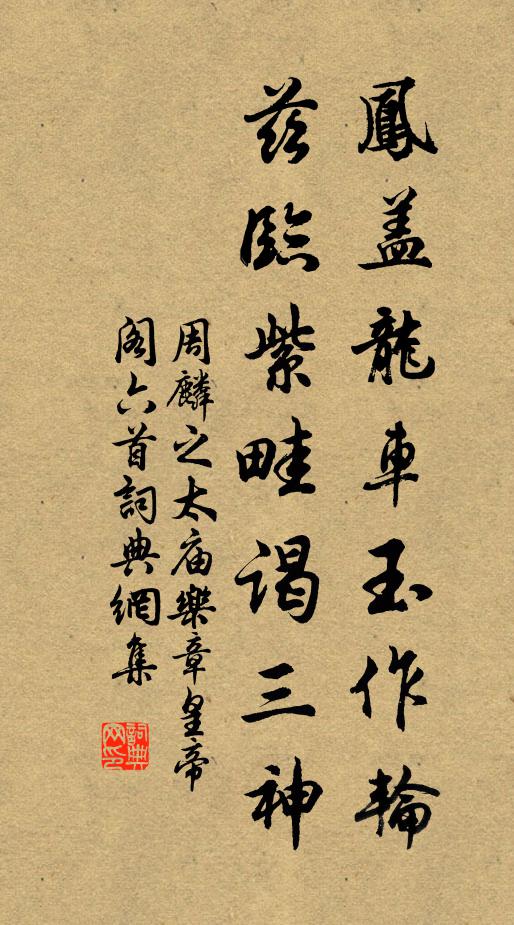 鳳蓋龍車玉作輪
茲臨紫畦謁三神
周麟之太庙樂章皇帝
閣六首詞典網集
詞典网印